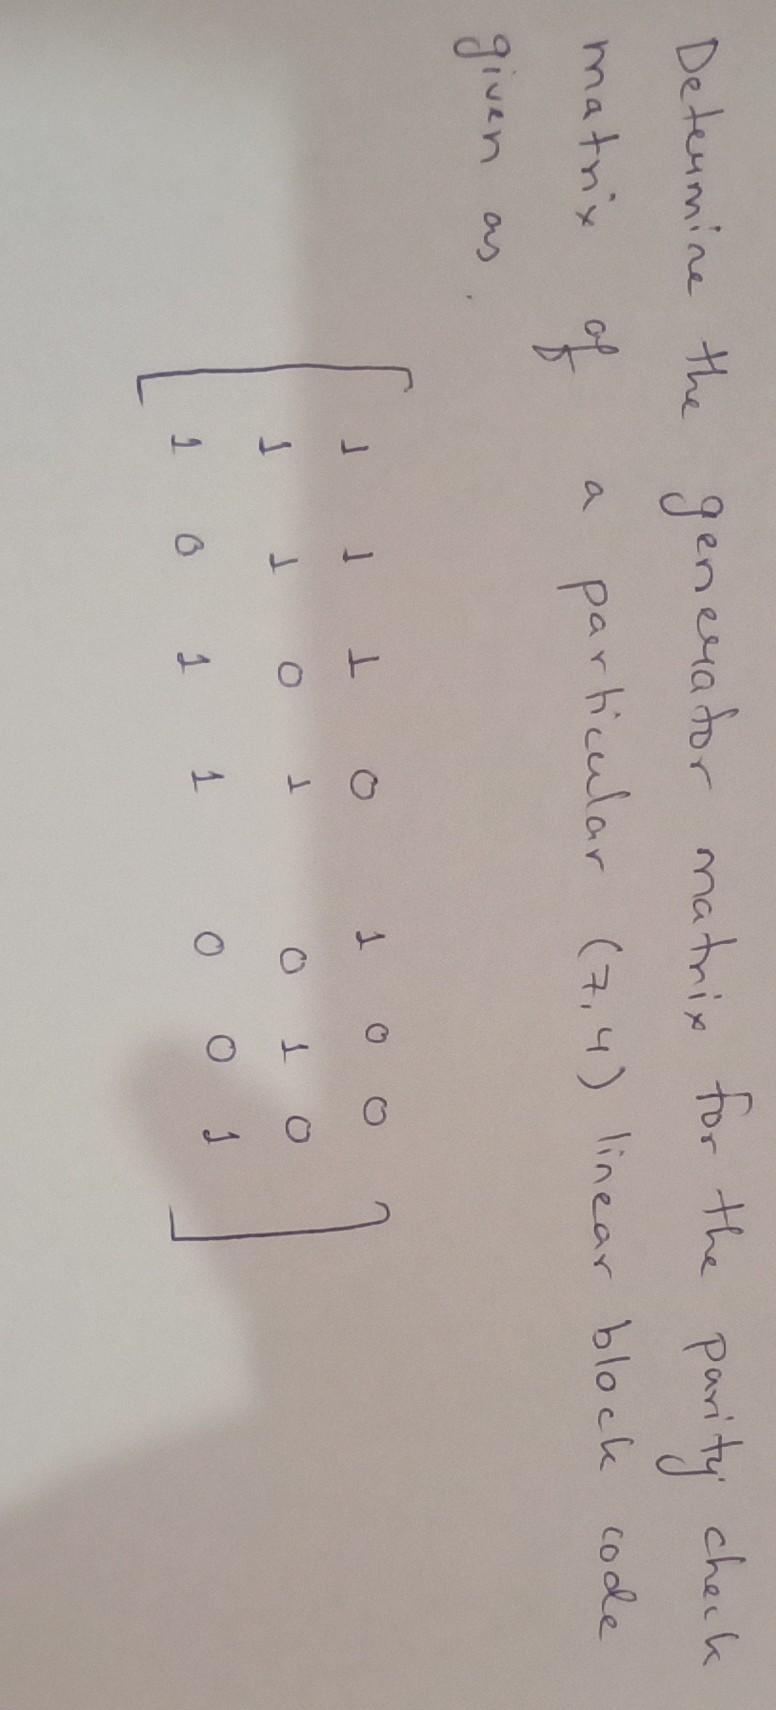 Determine the generator matrix for the parity check
matrix of a particular (7,4) linear block code
given as
1 1 1 0 1 0 0
1 1 0 1 0 1 0
1 0 1 1 0 0 1